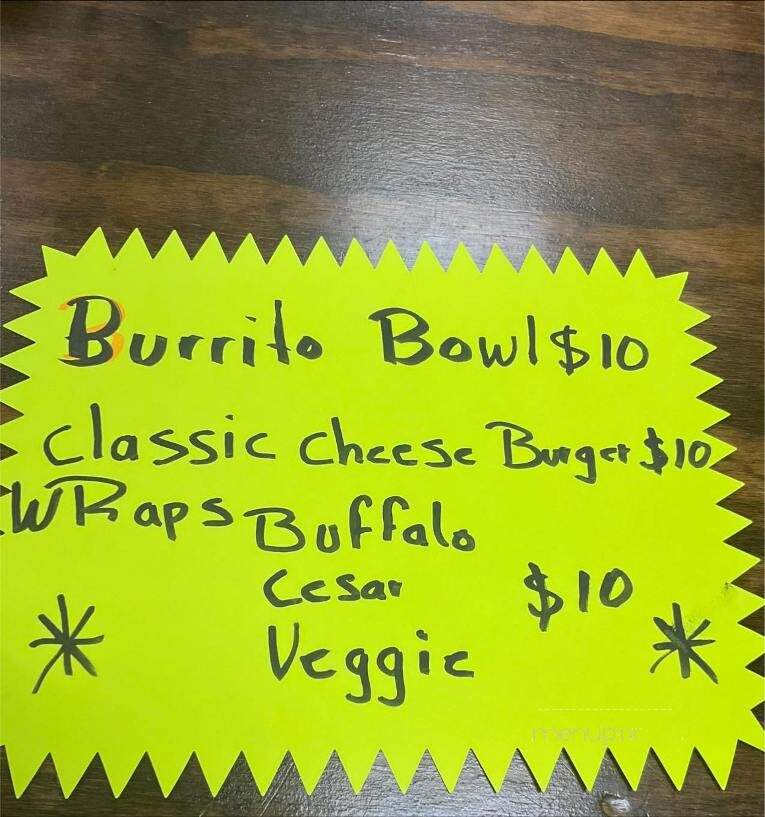 Burrito Bowl $10
Classic Cheese Burger $10
WRaps Buffalo
Cesar $10
Veggie
menupix